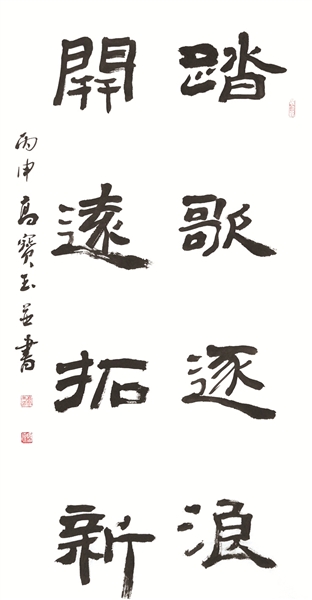 踏歌逐浪
開遠拓新
丙申高寶玉並書